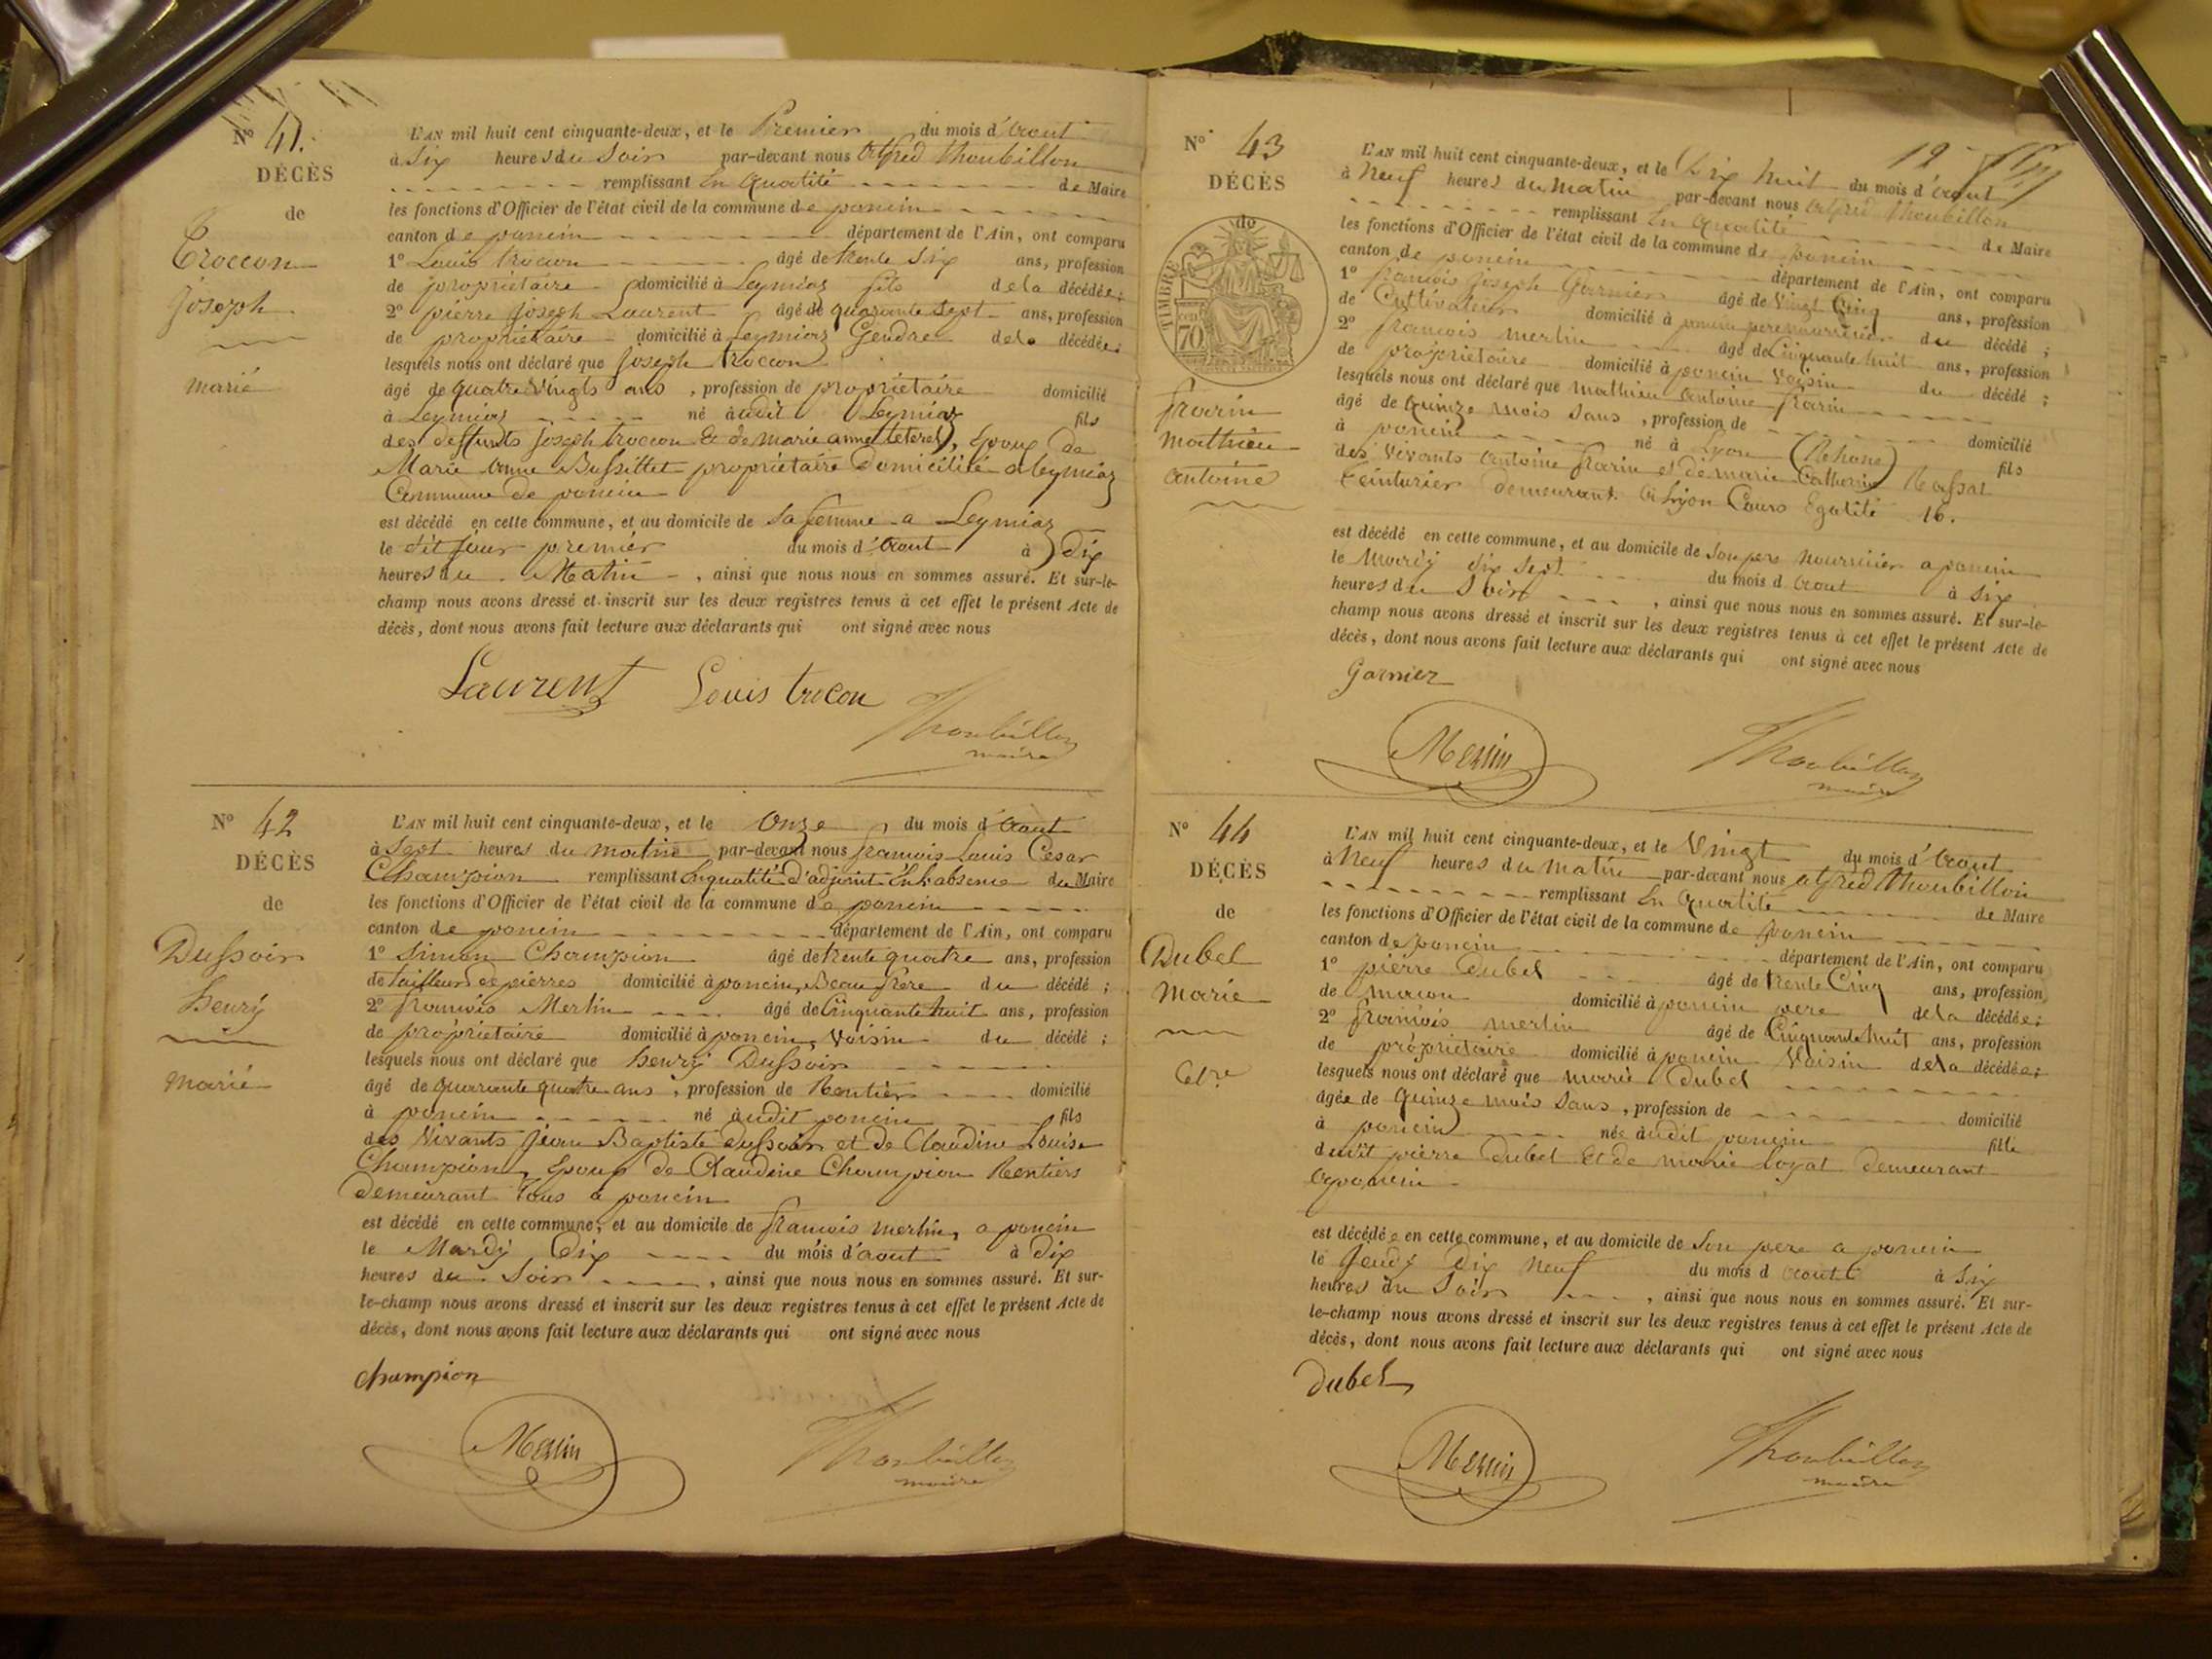 N° 41.
DÉCÈS
de
Troccon
Joseph
marié
L'AN mil huit cent cinquante-deux, et le Premier du mois d'Aout
à Six heures du Soir par-devant nous Alfred Thoubillon
remplissant En Qualité de Maire
les fonctions d'Officier de l'état civil de la commune de poncin
canton de poncin département de l'Ain, ont comparu
1° Louis trocon âgé de trente Six ans, profession
de propriétaire domicilié à Leymiaz fils de la décédée;
2° pierre Joseph Laurent âgé de quarante Sept ans, profession
de propriétaire domicilié à Leymiaz Gendre de la décédée;
lesquels nous ont déclaré que Joseph trocon
âgé de quatre Vingts ans, profession de propriétaire domicilié
à Leymiaz né audit Leymiaz fils
des deffunts Joseph trocon & de marie anne, Epoux de
Marie Anne Bussillet propriétaire Domiciliée a Leymiaz
Commune de poncin
est décédé en cette commune, et au domicile de sa femme a Leymiaz
le dit jour premier du mois d'Aout à Dix
heures du Matin, ainsi que nous nous en sommes assuré. Et sur-le-
champ nous avons dressé et inscrit sur les deux registres tenus à cet effet le présent Acte de
décès, dont nous avons fait lecture aux déclarants qui ont signé avec nous
Laurent Louis trocon
Thoubillon
maire
N° 42
DÉCÈS
de
Dussoir
henry
marié
L'AN mil huit cent cinquante-deux, et le Onze du mois d'Aout
à Sept heures du matin par-devant nous francois Louis Cesar
Champion remplissant En qualité d'adjoint En l'absence du Maire
les fonctions d'Officier de l'état civil de la commune de poncin
canton de poncin département de l'Ain, ont comparu
1° Simon Champion âgé de trente quatre ans, profession
de tailleur de pierres domicilié à poncin, Beau frère du décédé;
2° francois Merlin âgé de Cinquante huit ans, profession
de propriétaire domicilié à poncin, Voisin du décédé;
lesquels nous ont déclaré que henry Dussoir
âgé de quarante quatre ans, profession de Rentier domicilié
à poncin né audit poncin fils
des Vivants Jean Baptiste dussoir et de Claudine Louise
Champion, Epoux de Claudine Champion Rentiers
demeurant Tous a poncin
est décédé en cette commune, et au domicile de francois merlin, a poncin
le Mardy Dix du mois d'aout à Dix
heures du Soir, ainsi que nous nous en sommes assuré. Et sur-
le-champ nous avons dressé et inscrit sur les deux registres tenus à cet effet le présent Acte de
décès, dont nous avons fait lecture aux déclarants qui ont signé avec nous
Champion
Merlin
Thoubillon
maire
12
N° 43
DÉCÈS
de
TIMBRE
70
frarin
mathieu
antoine
L'AN mil huit cent cinquante-deux, et le Dix huit du mois d'Aout
à Neuf heures du matin par-devant nous Alfred Thoubillon
remplissant En Qualité de Maire
les fonctions d'Officier de l'état civil de la commune de poncin
canton de poncin département de l'Ain, ont comparu
1° francois Joseph Garnier âgé de Vingt Cinq ans, profession
de Cultivateur domicilié à poncin pere nourricier du décédé;
2° francois merlin âgé de Cinquante huit ans, profession
de propriétaire domicilié à poncin Voisin du décédé;
lesquels nous ont déclaré que mathieu antoine frarin
âgé de Quinze mois Sans, profession de domicilié
à poncin né à Lyon (Rhone) fils
des Vivants Antoine frarin et de marie Catherine
teinturier demeurant a Lyon Cours Egalité 16.
est décédé en cette commune, et au domicile de Son pere nourricier a poncin
le Mardy dix Sept du mois d Aout à Six
heures du Soir, ainsi que nous nous en sommes assuré. Et sur-le-
champ nous avons dressé et inscrit sur les deux registres tenus à cet effet le présent Acte de
décès, dont nous avons fait lecture aux déclarants qui ont signé avec nous
Garnier
Merlin
Thoubillon
maire
N° 44
DÉCÈS
de
Dubel
marie
Celre
L'AN mil huit cent cinquante-deux, et le Vingt du mois d'Aout
à Neuf heures du matin par-devant nous Alfred Thoubillon
remplissant En Qualité de Maire
les fonctions d'Officier de l'état civil de la commune de poncin
canton de poncin département de l'Ain, ont comparu
1° pierre Dubel âgé de trente Cinq ans, profession
de macon domicilié à poncin pere de la décédée;
2° francois merlin âgé de Cinquante huit ans, profession
de propriétaire domicilié à poncin Voisin de la décédée;
lesquels nous ont déclaré que marie Dubel
âgée de Quinze mois Sans, profession de domicilié
à poncin née audit poncin fille
dudit pierre Dubel et de marie loyat demeurant
a poncin
est décédée en cette commune, et au domicile de Son pere a poncin
le Jeudy Dix Neuf du mois d aout à Six
heures du Soir, ainsi que nous nous en sommes assuré. Et sur-
le-champ nous avons dressé et inscrit sur les deux registres tenus à cet effet le présent Acte de
décès, dont nous avons fait lecture aux déclarants qui ont signé avec nous
Dubel
Merlin
Thoubillon
maire